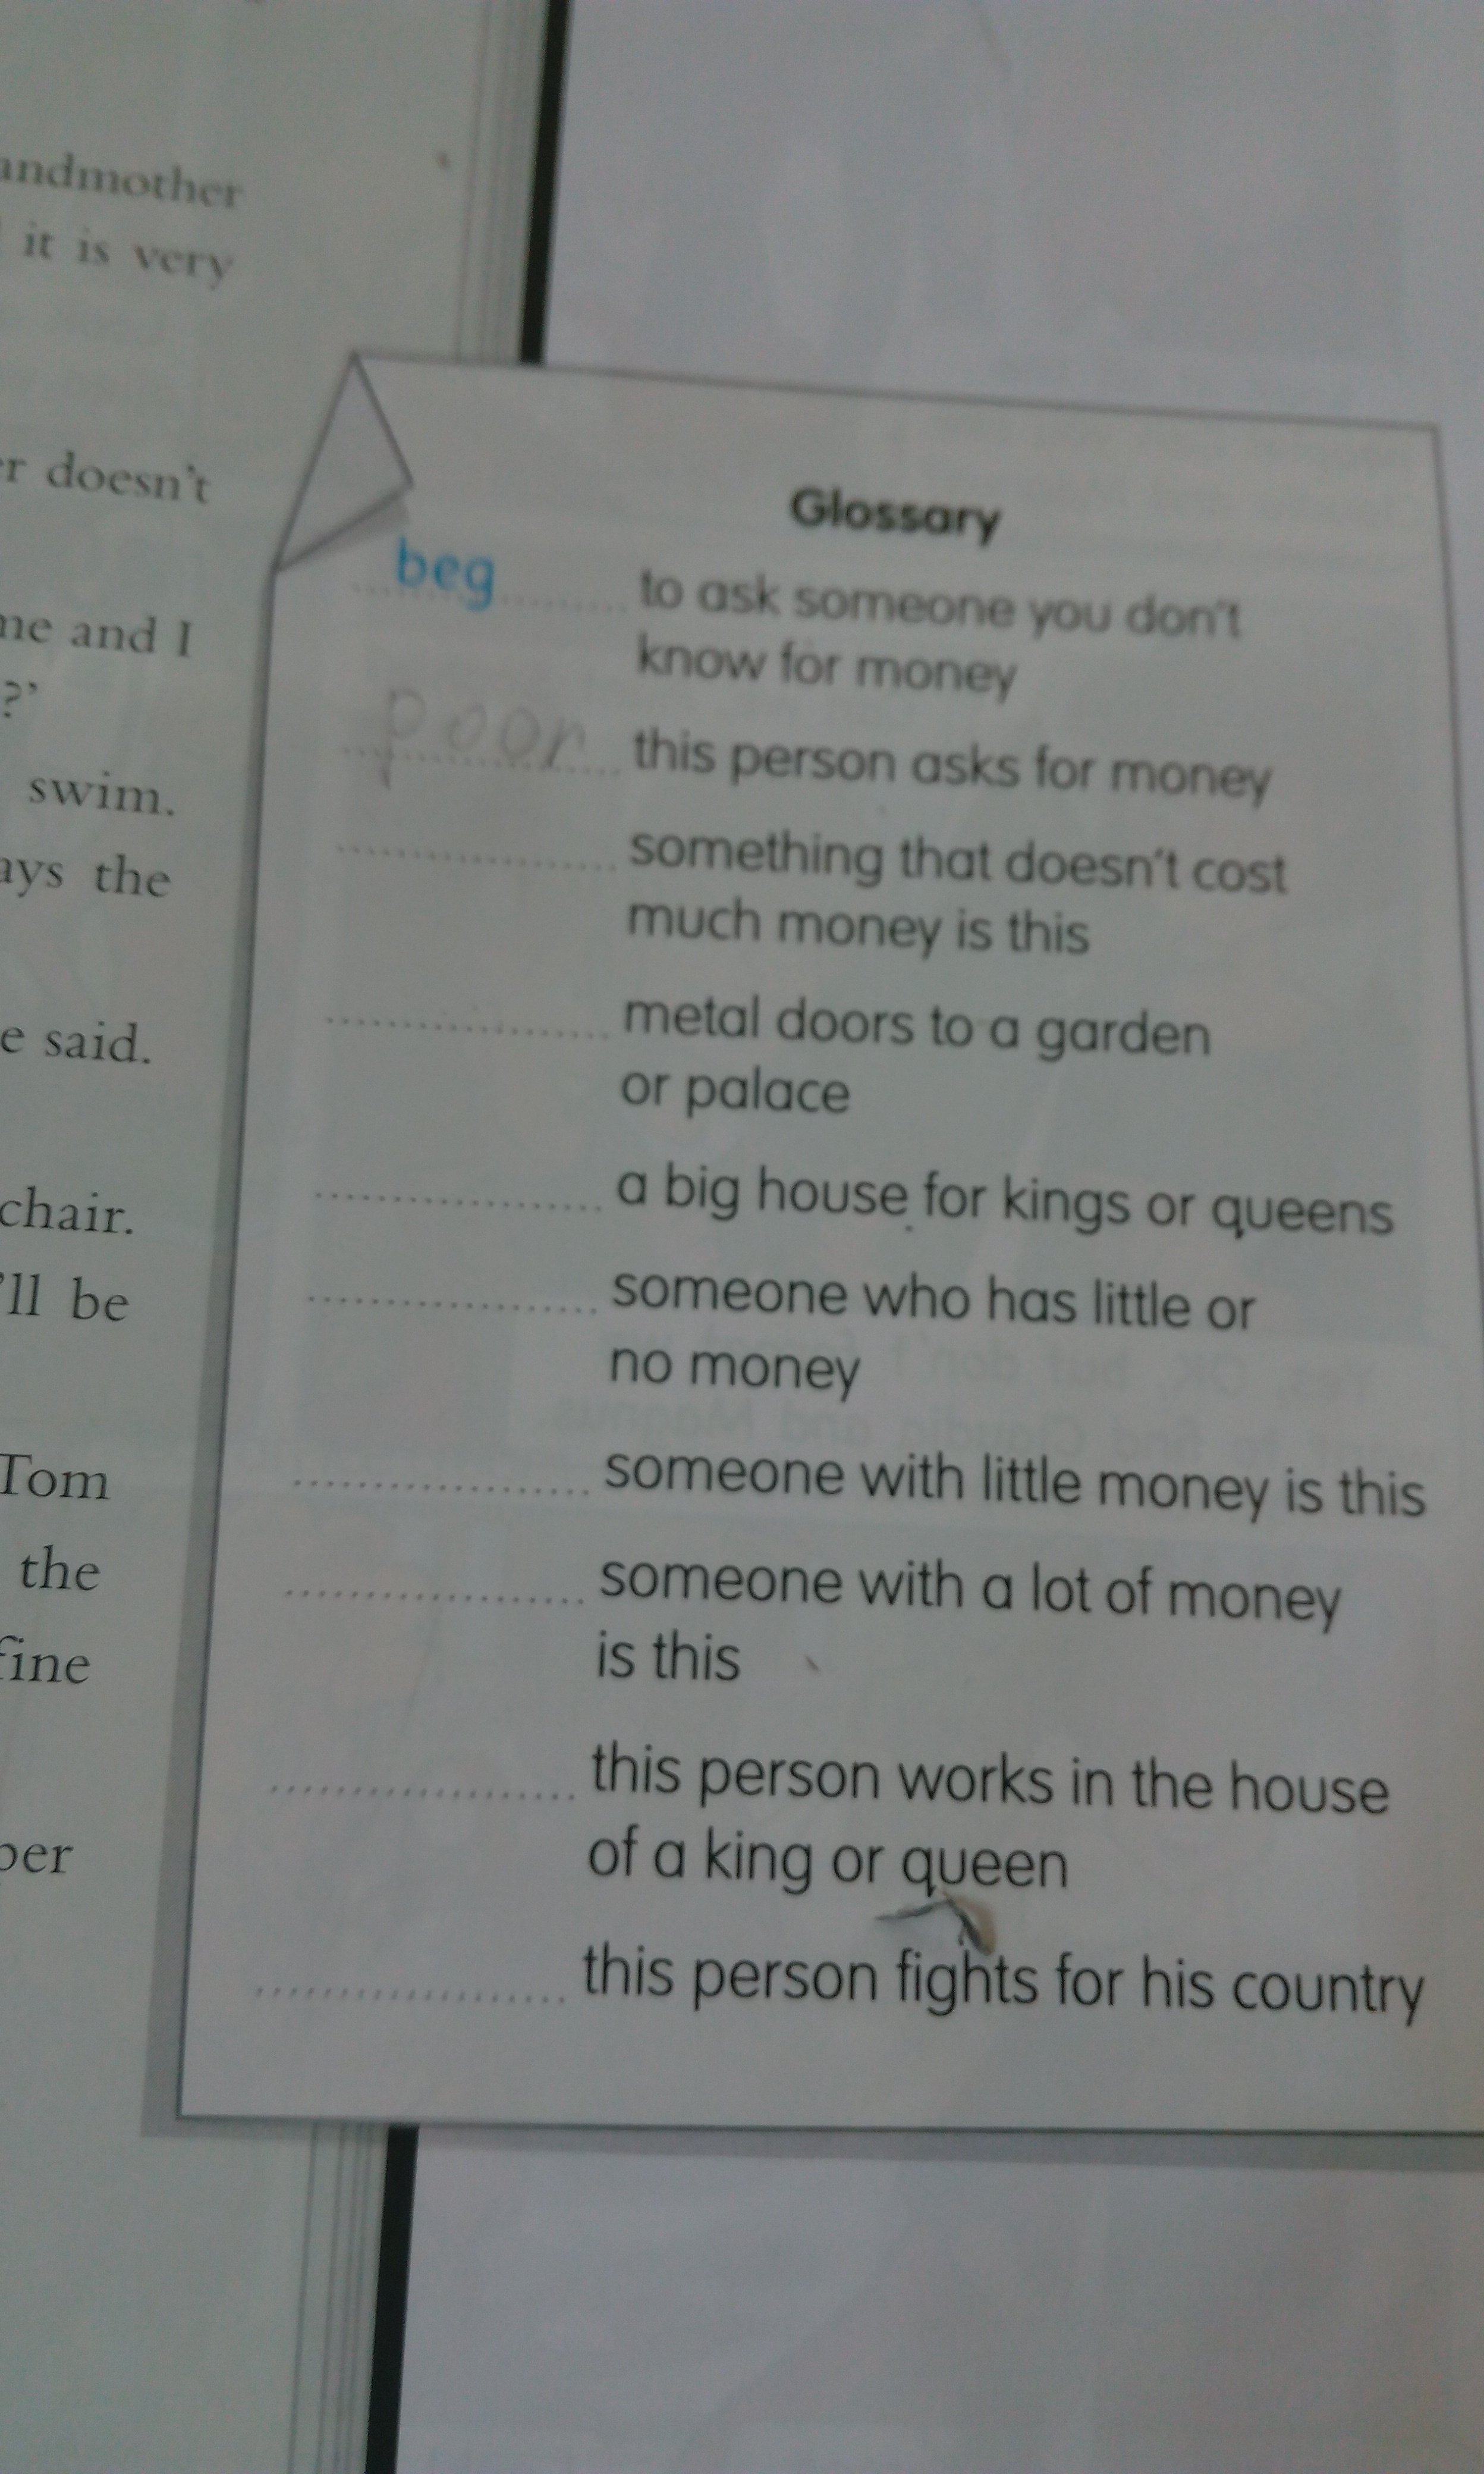 andmother
it is very
r doesn't
me and I
?'
swim.
ays the
e said.
chair.
'll be
Tom
the
fine
per
Glossary
beg to ask someone you don't
know for money
poor this person asks for money
something that doesn't cost
much money is this
metal doors to a garden
or palace
a big house for kings or queens
someone who has little or
no money
someone with little money is this
someone with a lot of money
is this
this person works in the house
of a king or queen
this person fights for his country